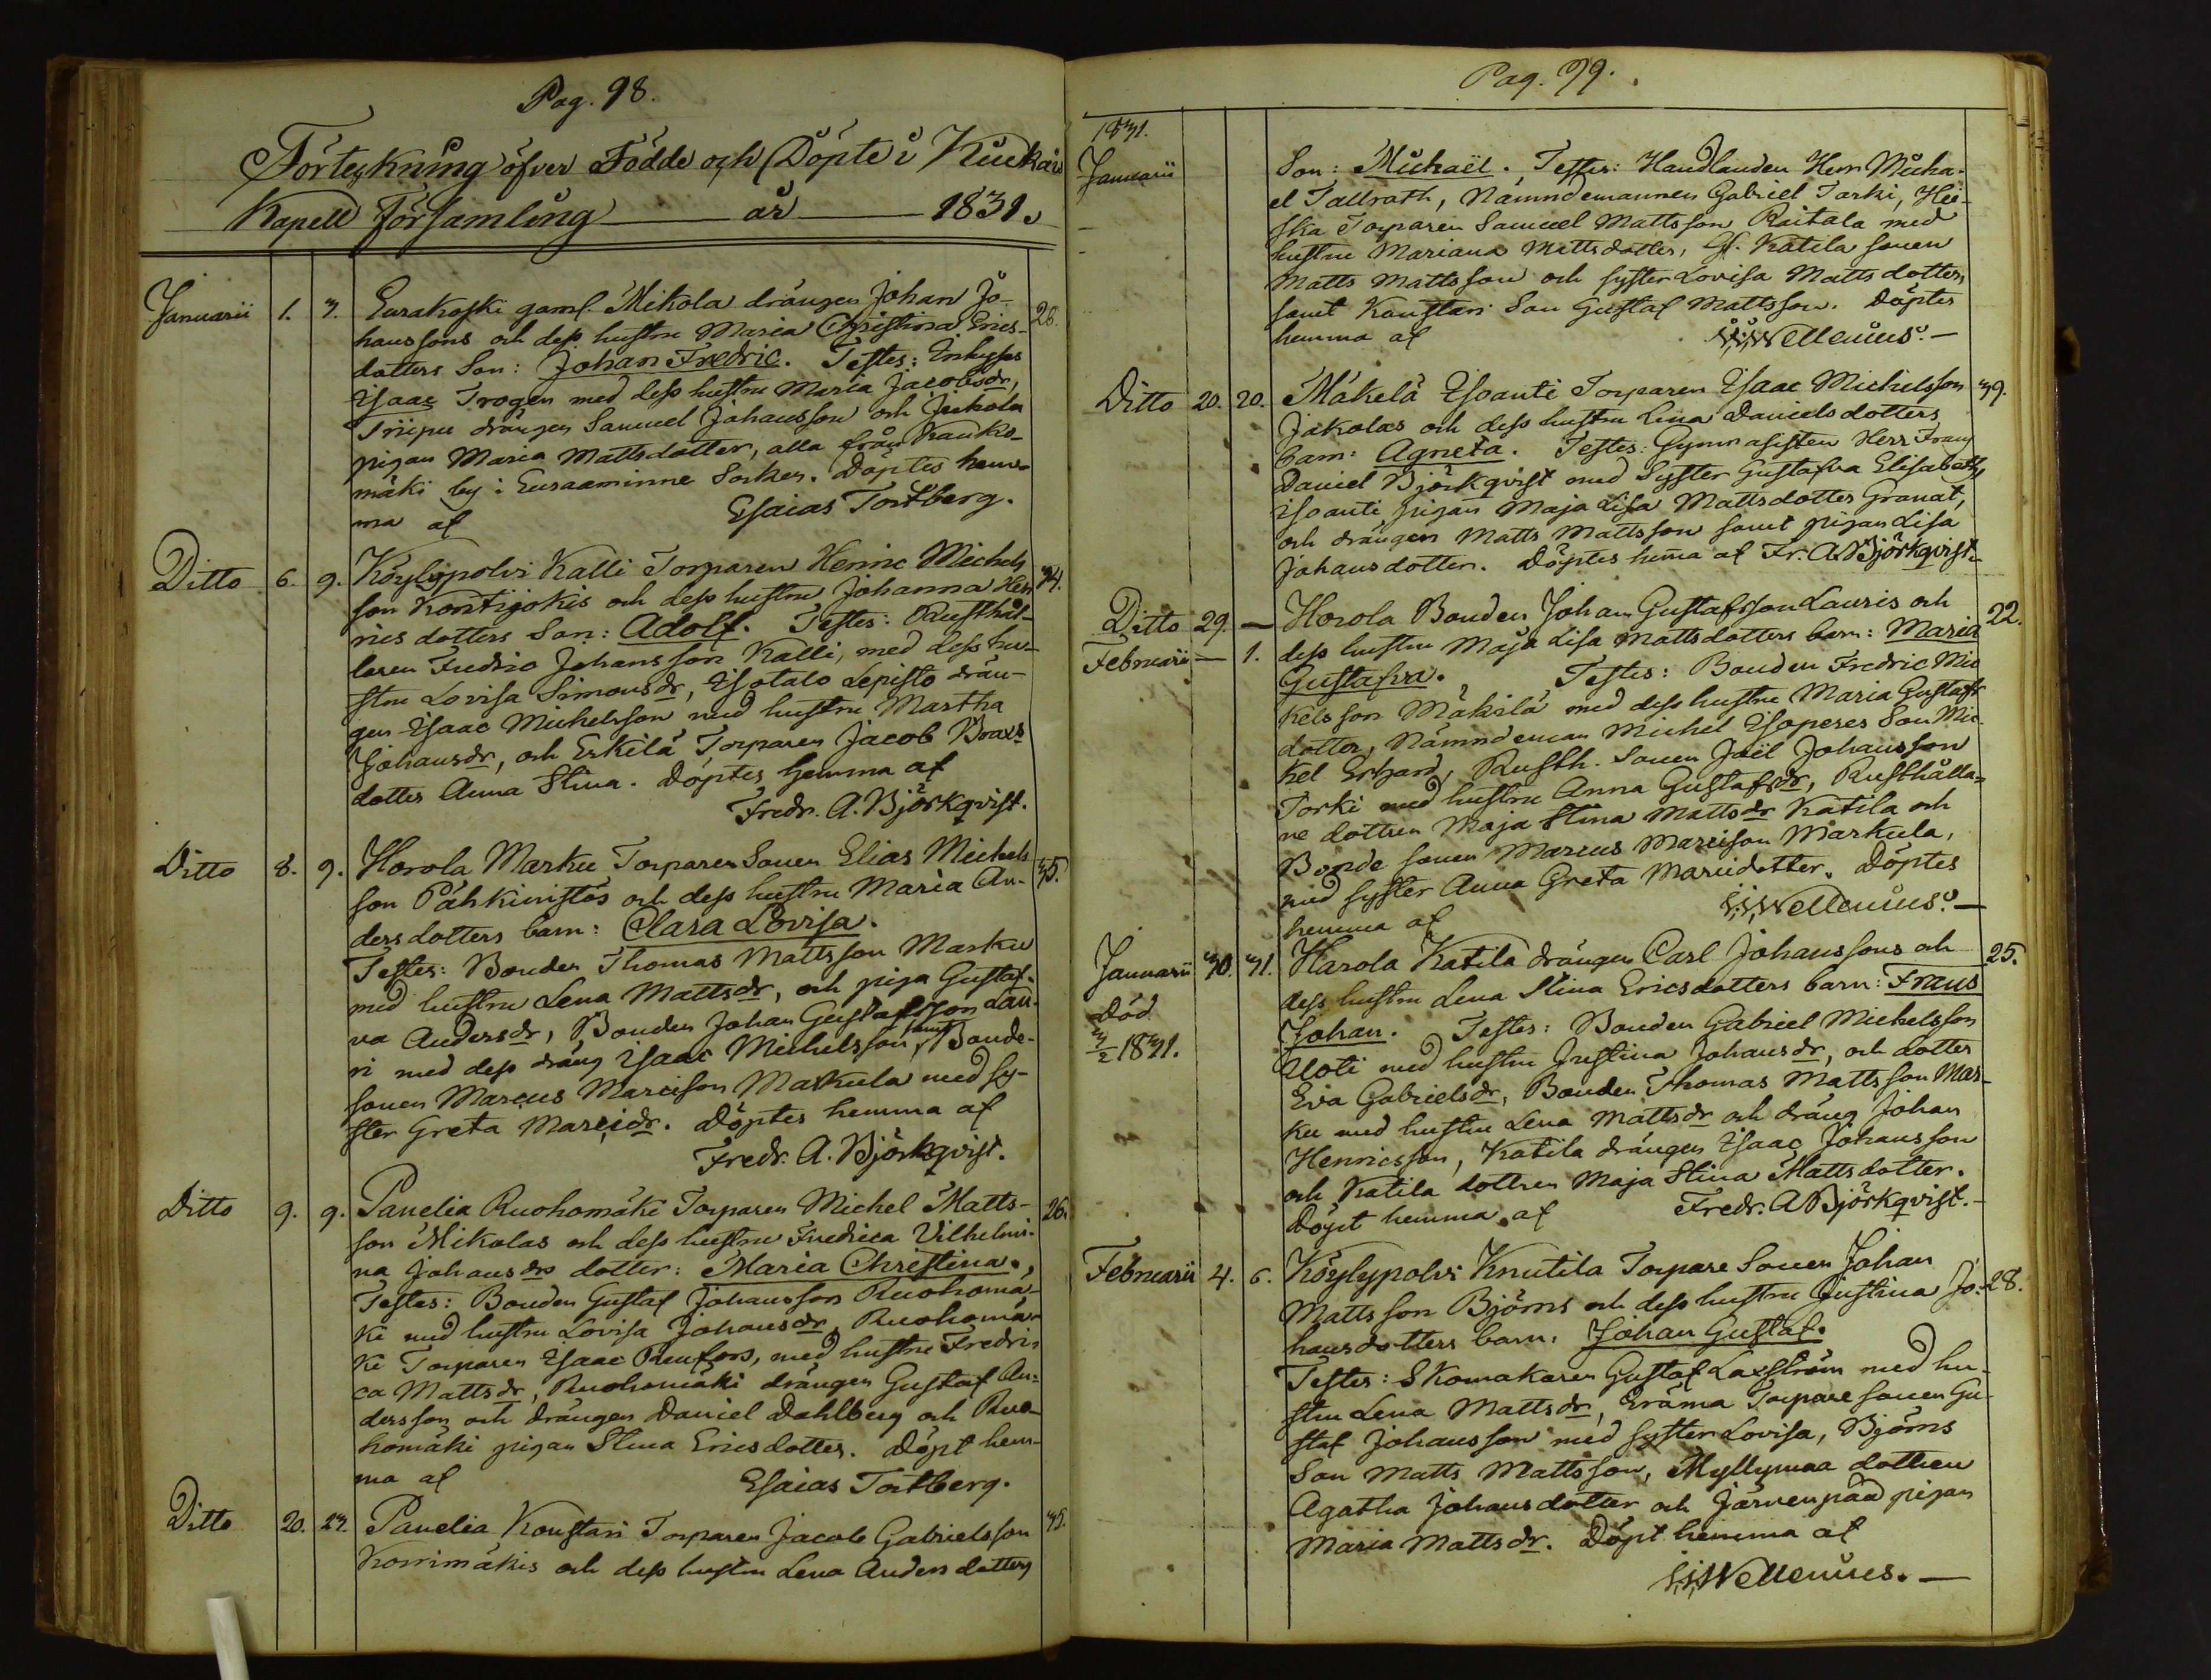 Pag. 98.
Förteckning öfver Födde och Döpte i Kiukais
Kapell Församling år 1831.
Januarii 1. 3. Eurakoski gaml. Mikola drängen Johan Jo- 26.
hanssons och dess hustru Maria Christina Erics-
dotters Son: Johan Fredric. Testes: Inhyses
Isaac Trogen med dess hustru Maria Jacobsdr,
Triipu drängen Samuel Johansson och Jickola
pigan Maria Mattsdotter, alla från Kauko-
mäki by i Euraaminne Socken. Döptes hem-
ma af Esaias Tortberg.
Ditto 6. 9. Köylypolvi Kalli Torparen Henric Michels 34.
son Kontijokis och dess hustru Johanna Hen
rics dotters Son: Adolf. Testes: Rusthål-
laren Fredric Johansson Kalli, med dess hu-
stru Lovisa Simonsdr, Isotalo Lepistö drän-
gen Isaac Michelsson med hustru Martha
Johansdr, och Erkilä Torparen Jacob Braxs
dotter Anna Stina. Döptes hemma af
Fredr. A. Björkqvist.
Ditto 8. 9. Horola Marku Torpare Sonen Elias Michels 35.
son Pähkinistös och dess hustru Maria An-
ders dotters barn: Clara Lovisa.
Testes: Bonden Thomas Mattsson Marku
med hustru Lena Mattsdr, och piga Gustaf-
va Andersdr, Bonden Johan Gustafsson Lau-
ri med dess dräng Isaac Michelsson, samt Bonde-
sonen Marcus Marcison Markula med sy-
ster Greta Marcidr. Döptes hemma af
Fredr. A. Björkqvist.
Ditto 9. 9. Panelia Ruohomäki Torparen Michel Matts- 26.
son Mikolas och dess hustru Fredrica Vilhelmi-
na Johansdrs dotter: Maria Christina.
Testes: Bonden Gustaf Johansson Ruohomä-
ki med hustru Lovisa Johansdr, Ruohomä-
ki Torparen Isaac Renfors, med hustru Fredri-
ca Mattsdr, Ruohomäki drängen Gustaf An-
dersson och drängen Daniel Dahlberg och Ruo-
homäki pigan Stina Ericsdotter. Döpt hem-
ma af Esaias Tortberg.
Ditto 20. 23. Panelia Konstari Torparen Jacob Gabrielsson 35.
Korrimäkis och dess hustru Lena Anders dotters
Pag. 99.
1831.
Januarii Son: Michaël. Testes: Handlanden Herr Micha-
el Tallrath, Nämndemannen Gabriel Tarki, Hei-
ska Torparen Samuel Mattsson Raitala med
hustru Mariana Mattsdotter, Gl. Katila sonen
Matts Mattsson och syster Lovisa Matts dotter,
samt Konstari Son Gustaf Mattsson. Döptes
hemma af Wellenius.
Ditto 20. 20. Mäkelä Esoanti Torparen Isaac Michelsson 39.
Jakolas och dess hustru Lena Daniels dotters
barn: Agneta. Testes: Gymnasisten Herr Frans
Daniel Björkqvist med Syster Gustafva Elisabeth,
Isoanti pigan Maja Lisa Mattsdotter Granat,
och drängen Matts Mattsson samt pigan Lisa
Johansdotter. Döptes hema af Fr. A. Björkqvist.
Ditto 29. — Horola Bonden Johan Gustafsson Lauris och 22.
Februarii — 1. dess hustru Maja Lisa Mattsdotters barn: Maria
Gustafva. Testes: Bonden Fredric Mic
kelsson Mäkilä med dess hustru Maria Gustafs
dotter, Nämndeman Michel Esoperes Son Mic-
kel Erhard, Rusth. Sonen Joël Johansson
Torki med hustru Anna Gustafsdr, Rusthålla-
re dottren Maja Stina Mattsdr Katila och
Bonde sonen Marcus Marcison Markula,
med syster Anna Greta Marcidotter. Döptes
hemma af Wellenius.
Januarii 30. 31. Harola Katila drängen Carl Johanssons och 25.
Död 3/2 1831. dess hustru Lena Stina Ericsdotters barn: Frans
Johan. Testes: Bonden Gabriel Michelsson
Uoti med hustru Justina Johansdr, och dotter
Eva Gabrielsdr, Bonden Thomas Mattsson Mar-
ku med hustru Lena Mattsdr och dräng Johan
Henricsson, Katila drängen Isaac Johansson
och Katila dottren Maja Stina Mattsdotter.
Döpt hemma af Fredr. A Björkqvist.
Februarii 4. 6. Köylypolvi Knutila Torpare Sonen Johan
Mattsson Björns och dess hustru Justina Jo- 28.
hansdotters barn: Johan Gustaf.
Testes: Skomakaren Gustaf Laxström med hu-
stru Lena Mattsdr, Eräma Torpare sonen Gu-
staf Johansson med syster Lovisa, Björns
Son Matts Mattsson, Myllymaa dottren
Agatha Johansdotter och Järvenpää pigan
Maria Mattsdr. Döpt hemma af
Wellenius.